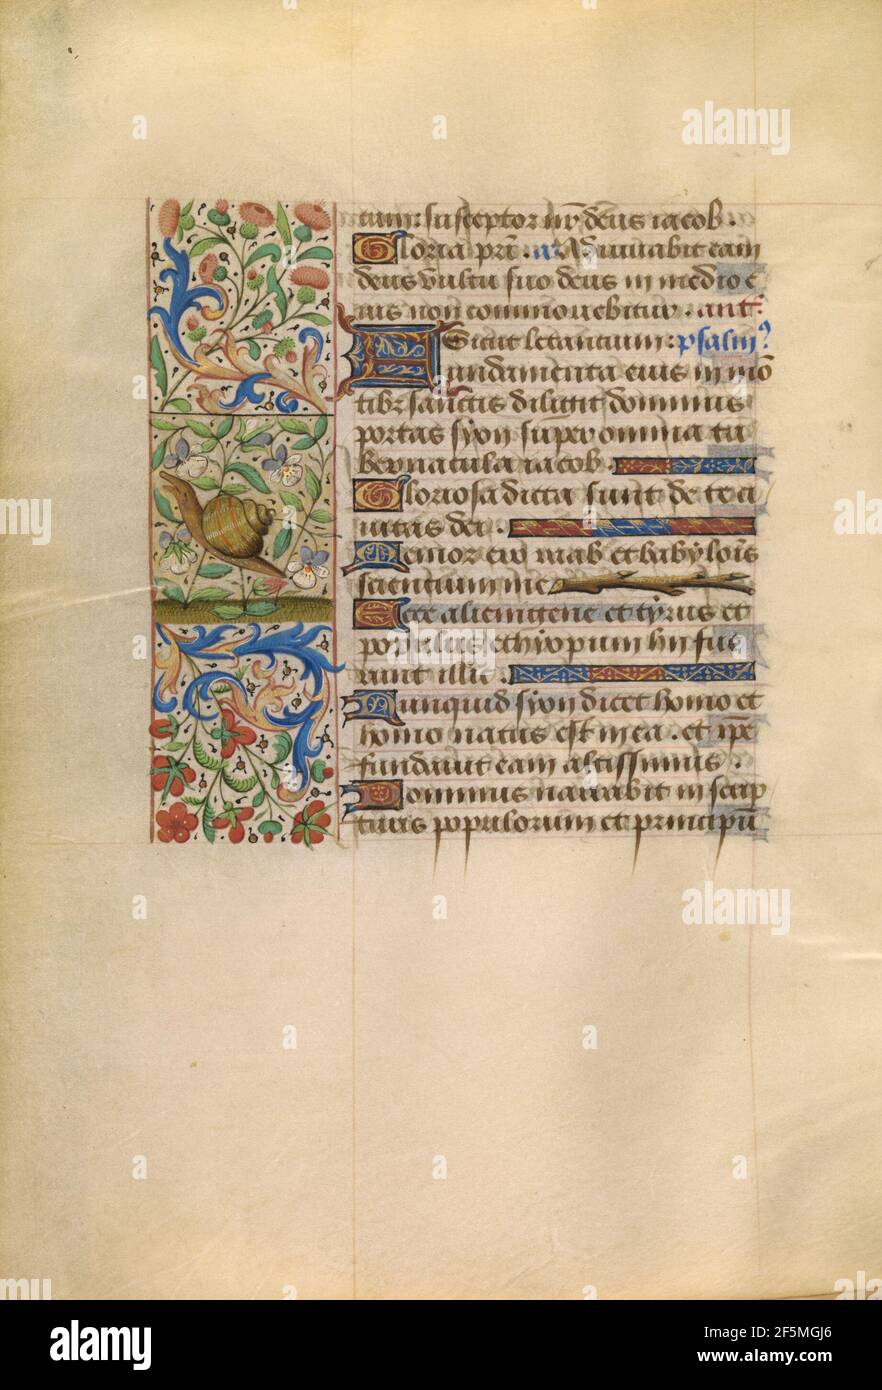 cum: susceptor nr̄ deus iacob.
Gloria pr̄i. a Adiuuabit eam
deus vultu suo deus in medio e
ius non commouebitur. ant.
Sicut letantium: psalm9
Fundamenta eius in mō
tibʒ sanctis diligit dominus
portas syon super omnia ta
bernacula iacob.
Gloriosa dicta sunt de te ci
uitas dei.
Memor ero raab et babylōis
scientium me
Ecce alienigene et tyrus et
populus ethyopum hij fue
runt illic.
Nunquid syon dicet homo et
homo natus est in ea. et ip̄e
fundauit eam altissimus.
Dominus narrabit in scrip
turis populorum et principū
alamy
alamy
alamy
alamy
alamy
alamy
a
a
a
a
a
a
a
a
a
a
a
alamy
Image ID: 2F5MGJ6
www.alamy.com